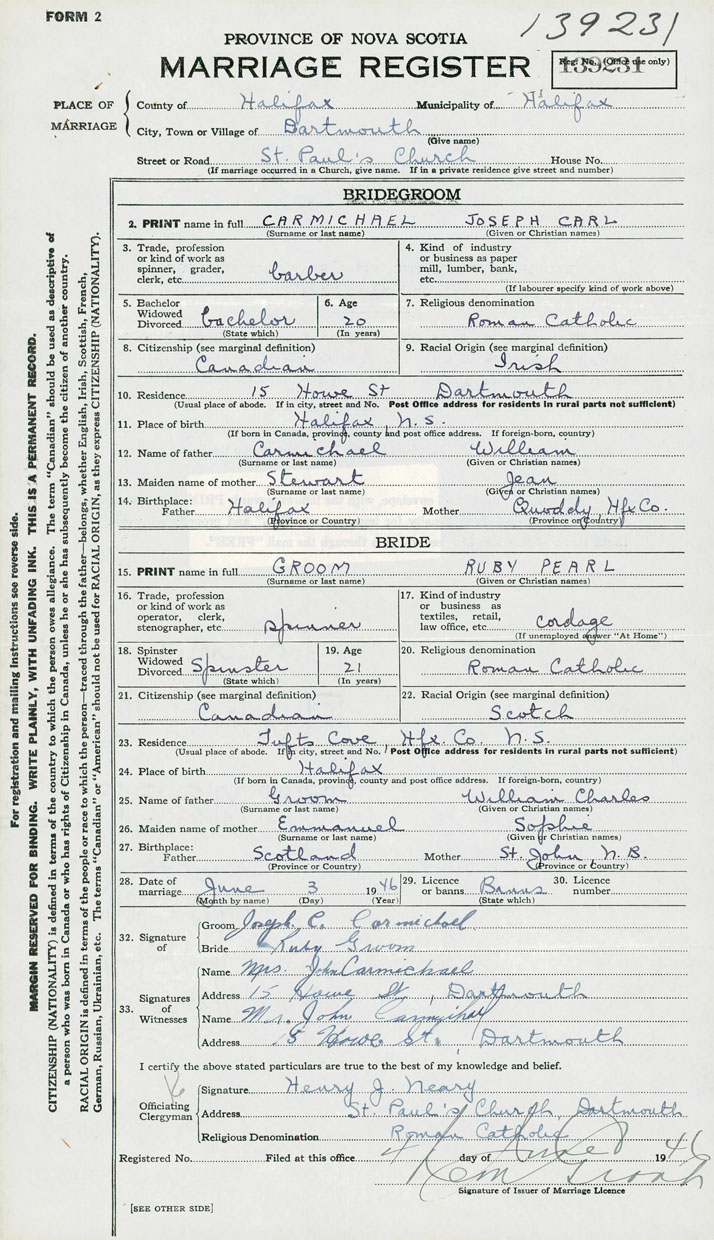 FORM 2
139231
PROVINCE OF NOVA SCOTIA
MARRIAGE REGISTER
Reg. No. (Office use only)
139231
PLACE OF MARRIAGE
County of Halifax Municipality of Halifax
City, Town or Village of Dartmouth
(Give name)
Street or Road St. Paul's Church House No.
(If marriage occurred in a Church, give name. If in a private residence give street and number)
BRIDEGROOM
2. PRINT name in full CARMICHAEL JOSEPH CARL
(Surname or last name) (Given or Christian names)
3. Trade, profession or kind of work as spinner, grader, clerk, etc. barber
4. Kind of industry or business as paper mill, lumber, bank, etc.
(If labourer specify kind of work above)
5. Bachelor Widowed Divorced bachelor
(State which)
6. Age 20
(In years)
7. Religious denomination
Roman Catholic
8. Citizenship (see marginal definition)
Canadian
9. Racial Origin (see marginal definition)
Irish
10. Residence 15 Howe St Dartmouth
(Usual place of abode. If in city, street and No. Post Office address for residents in rural parts not sufficient)
11. Place of birth Halifax N.S.
(If born in Canada, province, county and post office address. If foreign-born, country)
12. Name of father Carmichael William
(Surname or last name) (Given or Christian names)
13. Maiden name of mother Stewart Jean
(Surname or last name) (Given or Christian names)
14. Birthplace:
Father Halifax Mother Quoddy, Hfx Co.
(Province or Country) (Province or Country)
BRIDE
15. PRINT name in full GROOM RUBY PEARL
(Surname or last name) (Given or Christian names)
16. Trade, profession or kind of work as operator, clerk, stenographer, etc. spinner
17. Kind of industry or business as textiles, retail, law office, etc. cordage
(If unemployed answer "At Home")
18. Spinster Widowed Divorced Spinster
(State which)
19. Age 21
(In years)
20. Religious denomination
Roman Catholic
21. Citizenship (see marginal definition)
Canadian
22. Racial Origin (see marginal definition)
Scotch
23. Residence Tufts Cove Hfx. Co. N.S.
(Usual place of abode. If in city, street and No. Post Office address for residents in rural parts not sufficient)
24. Place of birth Halifax
(If born in Canada, province, county and post office address. If foreign-born, country)
25. Name of father Groom William Charles
(Surname or last name) (Given or Christian names)
26. Maiden name of mother Emmanuel Sophie
(Surname or last name) (Given or Christian names)
27. Birthplace:
Father Scotland Mother St. John N.B.
(Province or Country) (Province or Country)
28. Date of marriage June 3 1946
(Month by name) (Day) (Year)
29. Licence or banns Banns
(State which)
30. Licence number
32. Signature of
Groom Joseph C. Carmichael
Bride Ruby Groom
33. Signatures of Witnesses
Name Mrs. John Carmichael
Address 15 Howe St., Dartmouth
Name Mr. John Carmichael
Address 15 Howe St. Dartmouth
I certify the above stated particulars are true to the best of my knowledge and belief.
Officiating Clergyman
Signature Henry J. Neary
Address St. Paul's Church, Dartmouth
Religious Denomination Roman Catholic
Registered No. Filed at this office 4 day of June 1946
Signature of Issuer of Marriage Licence
[SEE OTHER SIDE]
For registration and mailing instructions see reverse side.
MARGIN RESERVED FOR BINDING. WRITE PLAINLY, WITH UNFADING INK. THIS IS A PERMANENT RECORD.
CITIZENSHIP (NATIONALITY) is defined in terms of the country to which the person owes allegiance. The term "Canadian" should be used as descriptive of
a person who was born in Canada or who has rights of Citizenship in Canada, unless he or she has subsequently become the citizen of another country.
RACIAL ORIGIN is defined in terms of the people or race to which the person—traced through the father—belongs, whether English, Irish, Scottish, French,
German, Russian, Ukrainian, etc. The terms "Canadian" or "American" should not be used for RACIAL ORIGIN, as they express CITIZENSHIP (NATIONALITY).